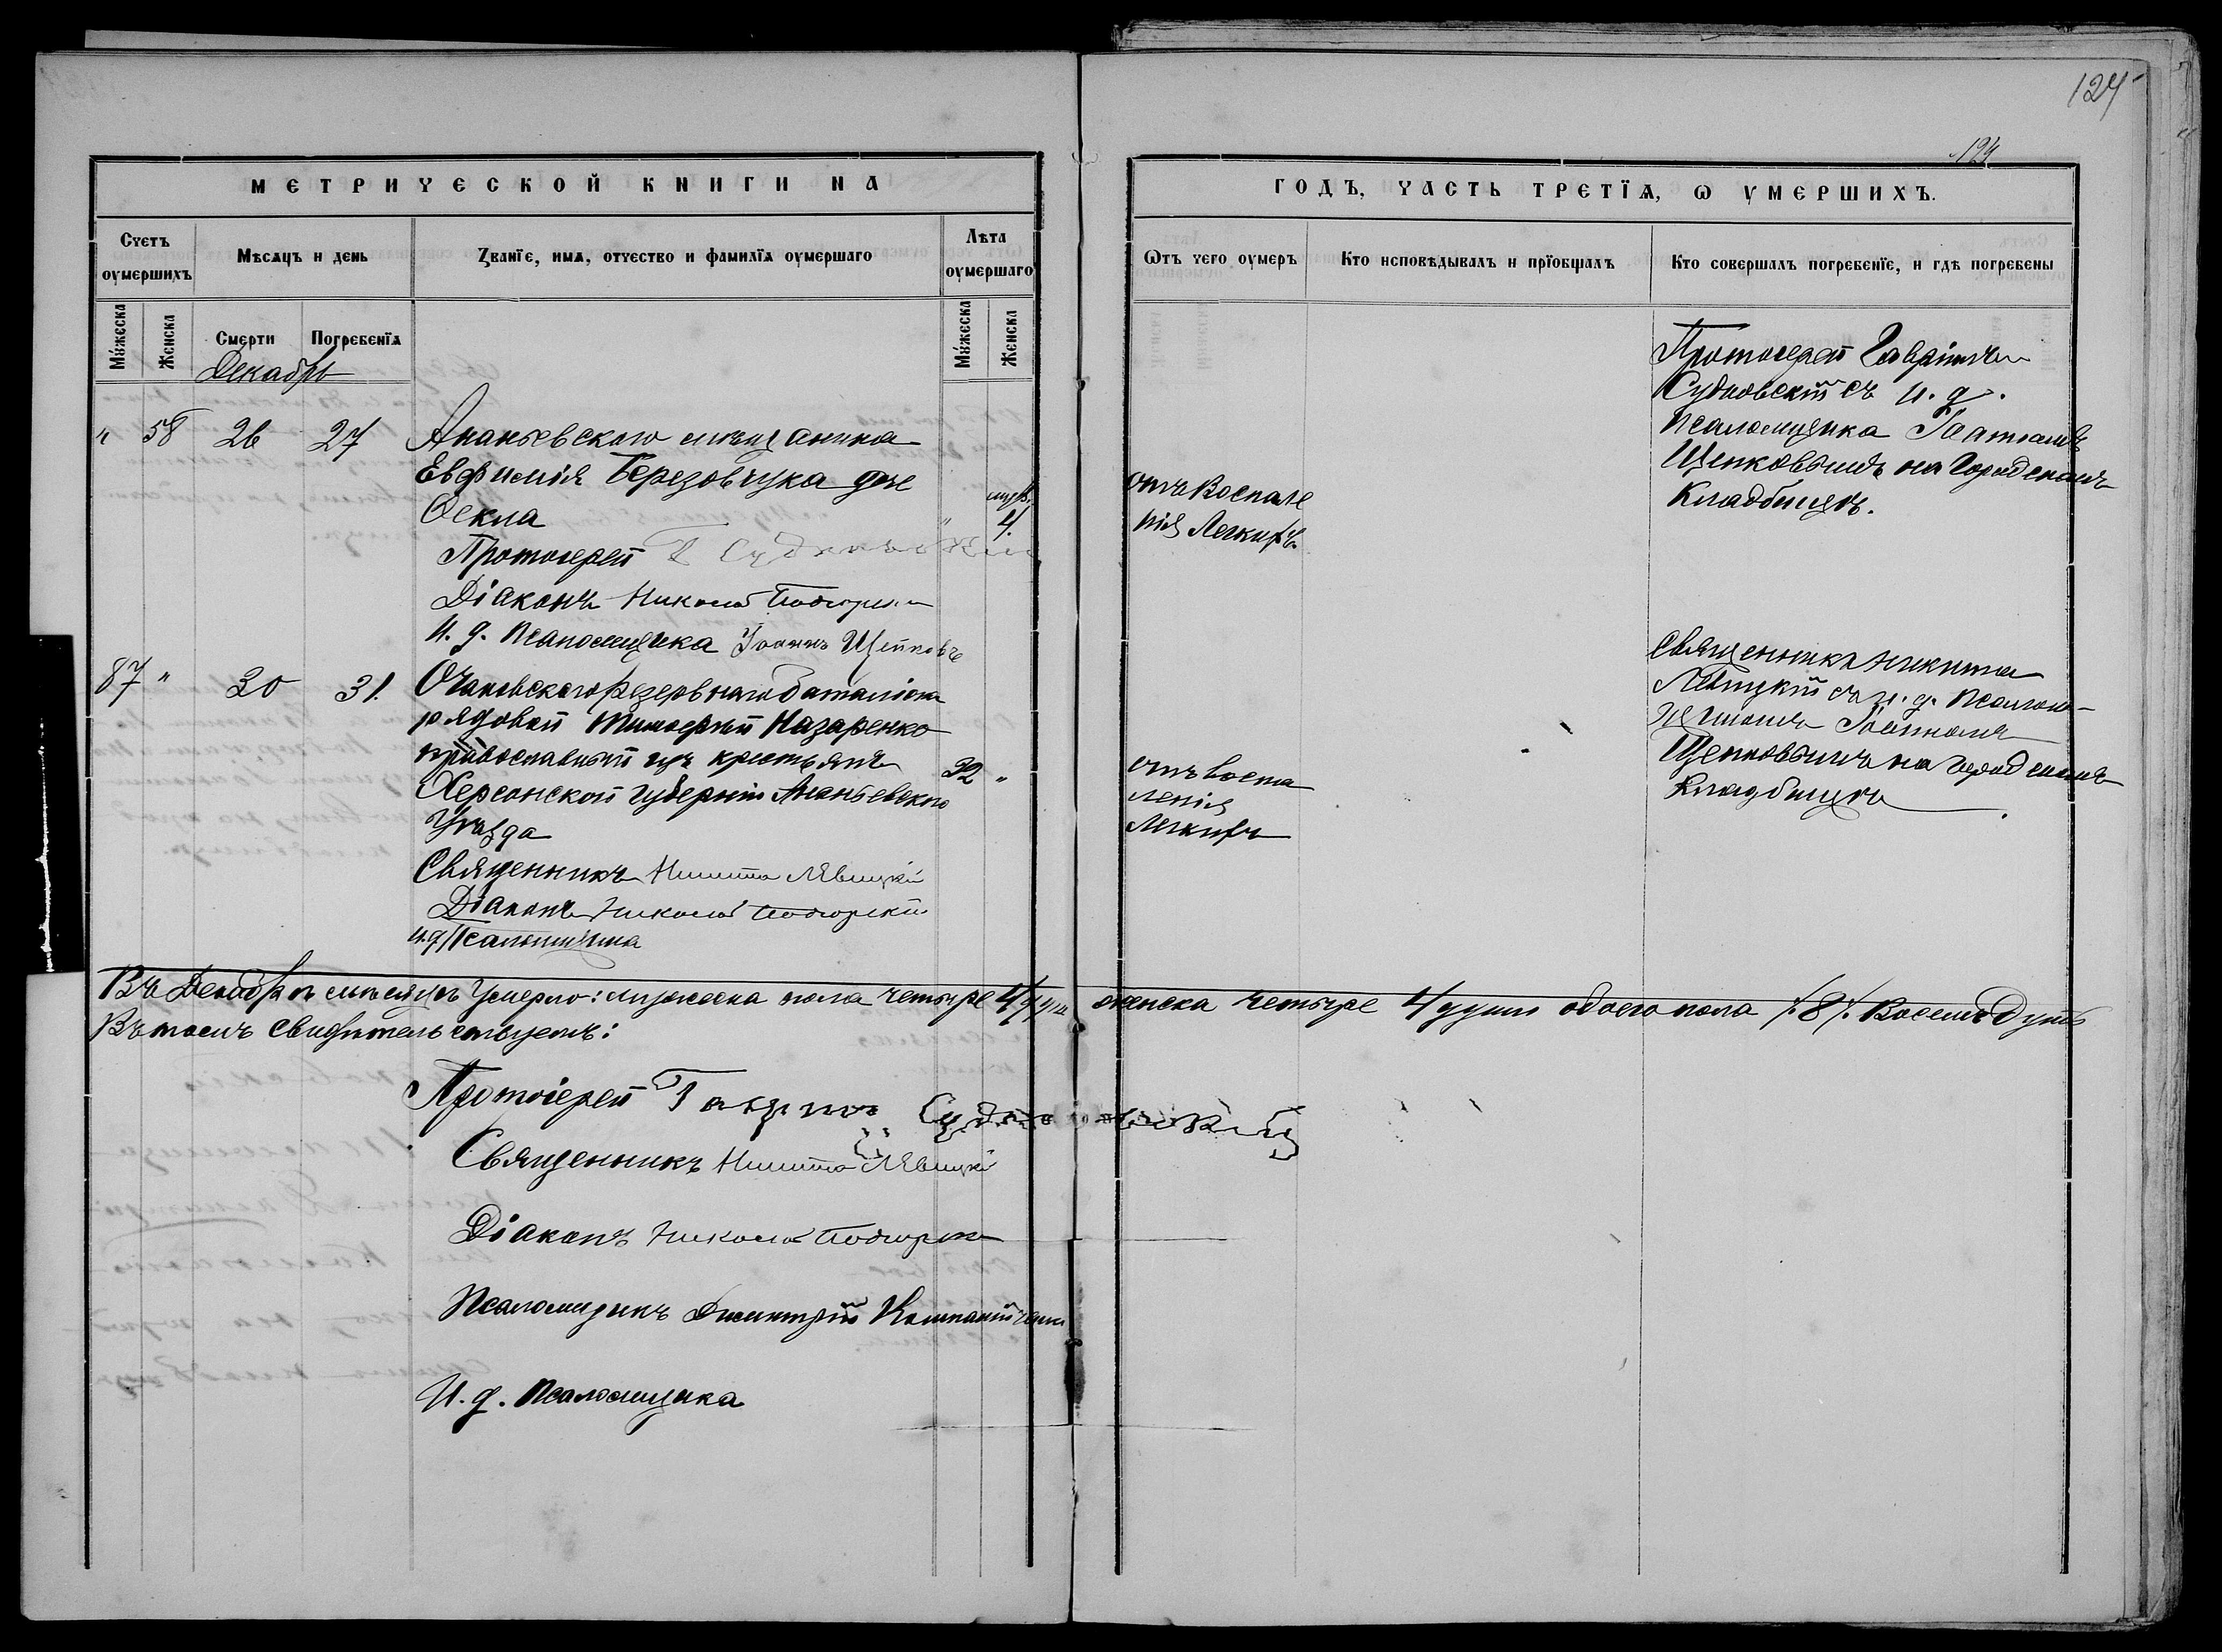 124
124
МЕТРИЧЕСКОЙ КНИГИ НА
ГОДЪ, ЧАСТЬ ТРЕТЇѦ, Ѡ УМЕРШИХЪ.
Счетъ оумершихъ
Мѣсѧцъ и день
Званїе, имѧ, отчество и фамилїѧ оумершаго
Лѣта оумершаго
Ѿтъ чего оумеръ
Кто исповѣдывалъ и прїобщалъ
Кто совершалъ погребенїе, и гдѣ погребены
Мꙋжеска
Женска
Смерти
Погребенїѧ
Мꙋжеска
Женска
Декабрь
" 58 26 27
Ананьевскаго мѣщанина
Евфимія Березовчука дче
Ѳекла
" 4.
Протоіерей Г Судковскій
Діаконъ Николай Подгорскій
И. д. Псаломщика Іоаннъ Щепковъ
отъ Воспале
нія Легкихъ
Протоіерей Гавріилъ
Судковскій съ и. д.
Псаломщика Іоанномъ
Щепковымъ на Городскомъ
Кладбищѣ.
87 " 30 31.
Очаковскаго резервнаго баталіона
рядовой Тимоѳей Назаренко
православный изъ крестьянъ
Херсонской Губерніи Ананьевскаго
Уѣзда
22 "
Священникъ Никита Лѣвицкій
Діаконъ Николай Подгорскій
и. д. Псаломщика
отъ воспа
ленія
Легкихъ
Священникъ Никита
Лѣвицкій съ и. д. Псалом-
щикомъ Іоанномъ
Щепковымъ на Городскомъ
Кладбищѣ
Въ Декабрѣ мѣсяцѣ Умерло: мужеска пола четыре 4 души женска четыре 4 души обоего пола /:8:/ Восемь Душъ
Въ томъ свидѣтельствуемъ:
Протоіерей Гавріилъ Судковскій
Священникъ Никита Лѣвицкій
Діаконъ Николай Подгорскій
Псаломщикъ Димитрій Компанійченко
И. д. Псаломщика